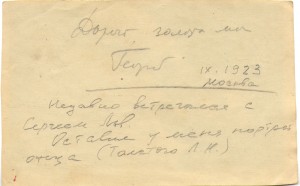 Дорогой,
Георг
IX. 1923
Москва
Недавно встречался с
Сергеем Льв.
Оставил у меня портрет
отца (Толстого Л.Н.)